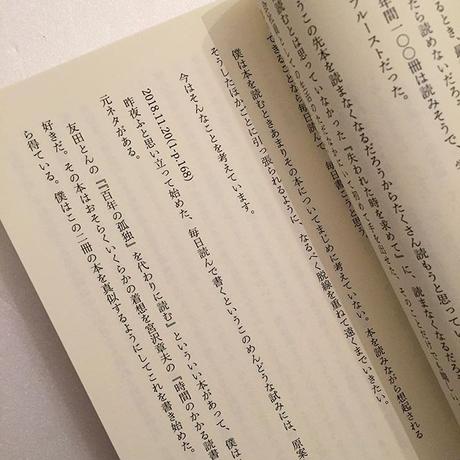 るとき、
たら読めないだろ
年間一〇〇冊は読みそうで、
プルーストだった。
うこの先本を読まなくなるだろうからたくさん読もうと思ってい
読むとは思っていなかった『失われた時を求めて』に、読まなくなるだろ
できることなら毎日読んで、毎日書こうと思う。
僕は本を読むときあまりその本についてまじめに考えていない。本を読みながら想起される
そうしたほかごとに引っ張られるように、なるべく脱線を重ねて遠くまでいきたい。
今はそんなことを考えています。
2018.11.20(1-p.168)
昨夜ふと思い立って始めた、毎日読んで書くというこのめんどうな試みには、原案
元ネタがある。
友田とんの『『百年の孤独』を代わりに読む』といういい本があって、僕は
好きだ。その本はおそらくいくらかの着想を宮沢章夫の『時間のかかる読書
ら得ている。僕はこの二冊の本を真似するようにしてこれを書き始めた。